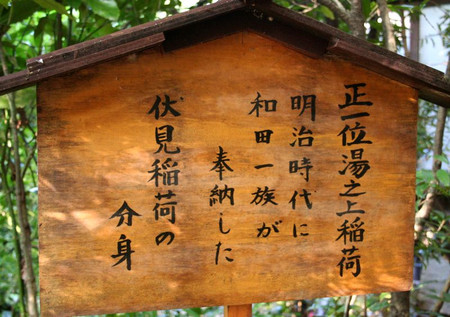 正一位湯之上稲荷
明治時代に
和田一族が
奉納した
伏見稲荷の
分身